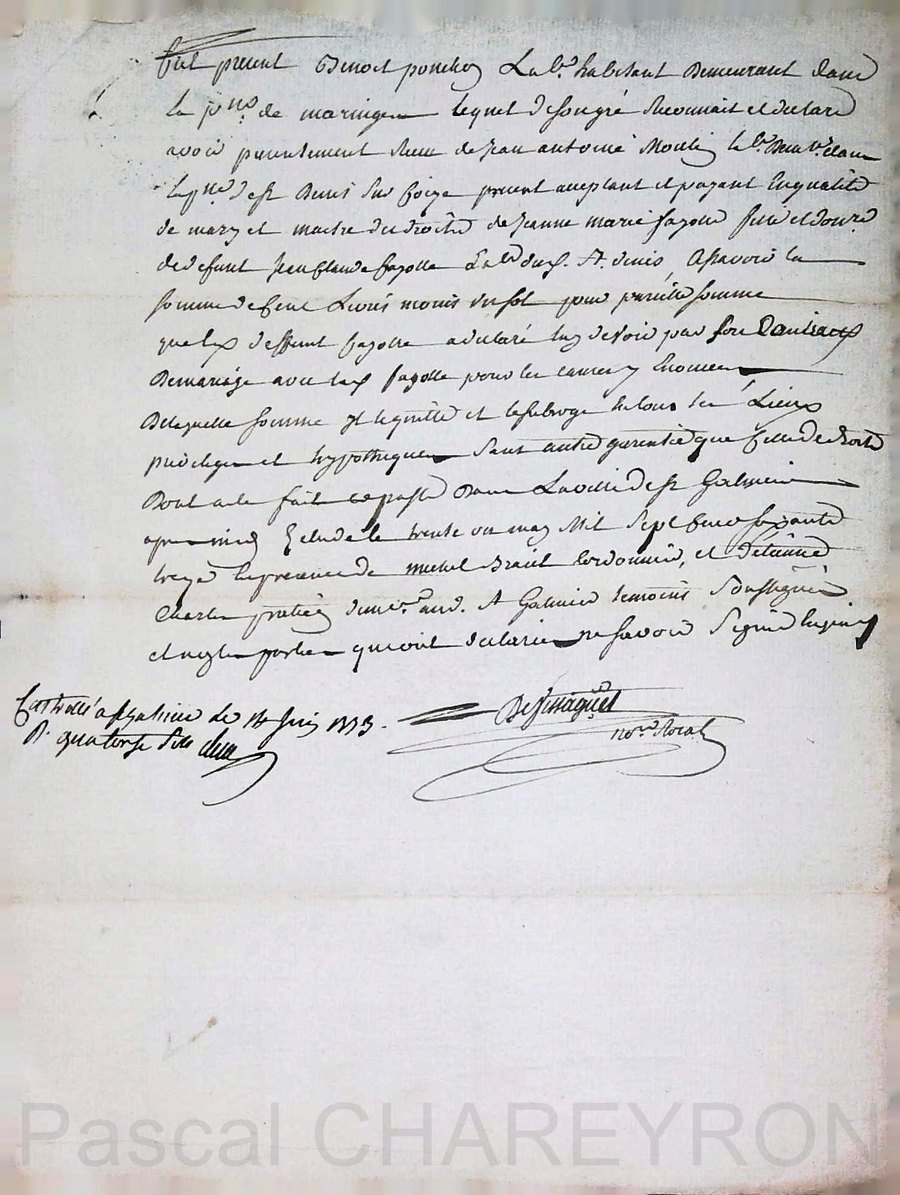 fut present Benoit ponchon Lab.r habitant Demeurant dans
La p.sse de maringes lequel de son gré Reconnait et declare
avoir presentement Receu de Jean antoine Moulin lab.r dem.t dans
la p.sse de st Denis sur Coize present acceptant et payant En qualité
de mary et maitre des droits de Jeanne marie fayolle fille et donre
de defunt Jean Claude fayolle Lab.r aud. St denis, Asavoir la
somme de Cent Livres moins un sol pour pareille somme
que led. deffunt fayolle a declaré luy devoir par son Contract
De mariage avec lad. fayolle pour les causes y Enoncees
De laquelle somme il le quitte et le subroge En tous ses Lieux
privileges et hypotheques Sans autre garentie que Celle de droit
Dont acte fait et passé Dans La ville de st Galmier
apres midy Etude le trente un may Mil Sept Cens soixante
treize En presence de michel Cordonnier, et d'étienne
Charles praticien dem.t aud. St Galmier temoins Soussignés
et non les parties qui ont declaré ne savoir Signer Enquis
Controllé a st galmier le 14 juin 1773.
R. quatorze sols
no.re Roial
Pascal CHAREYRON